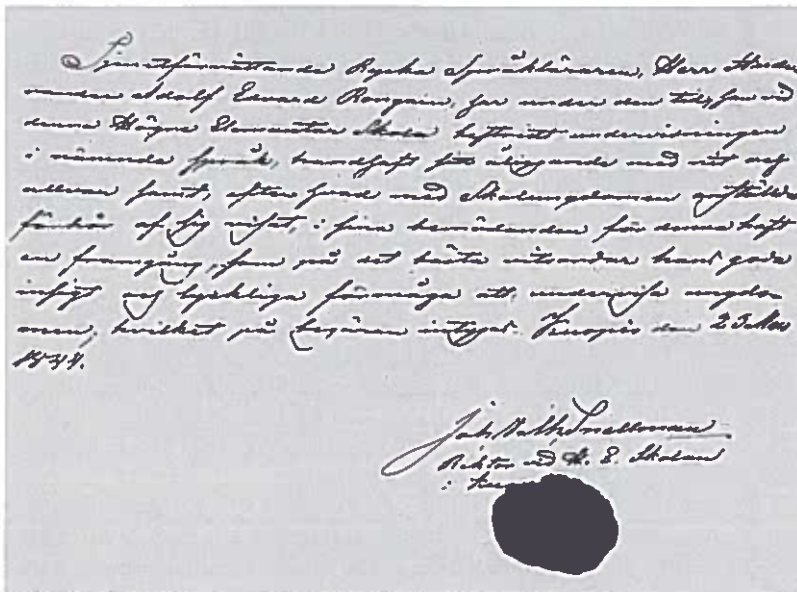 Tjenstförrättande Ryska Språkläraren, Herr Stude-
randen Adolf Edvard Rongain, har under den tid, han vid
denna Högre Elementar Skola bestridt undervisningen
i nämnde språk, handhaft sitt åliggande med nit och
allvar samt, efter hvad med Skolungdomen anstälde
förhör af sig visat, i sina bemödanden för denna haft
en framgång, som på det bästa vitsordar hans goda
insigt och lyckliga förmåga att undervisa ungdo-
men; hvilket på begäran intygas. Kuopio den 25 Nov
1844.
Joh. Vilh. Snellman
Rektor vid H. E. Skolan
i